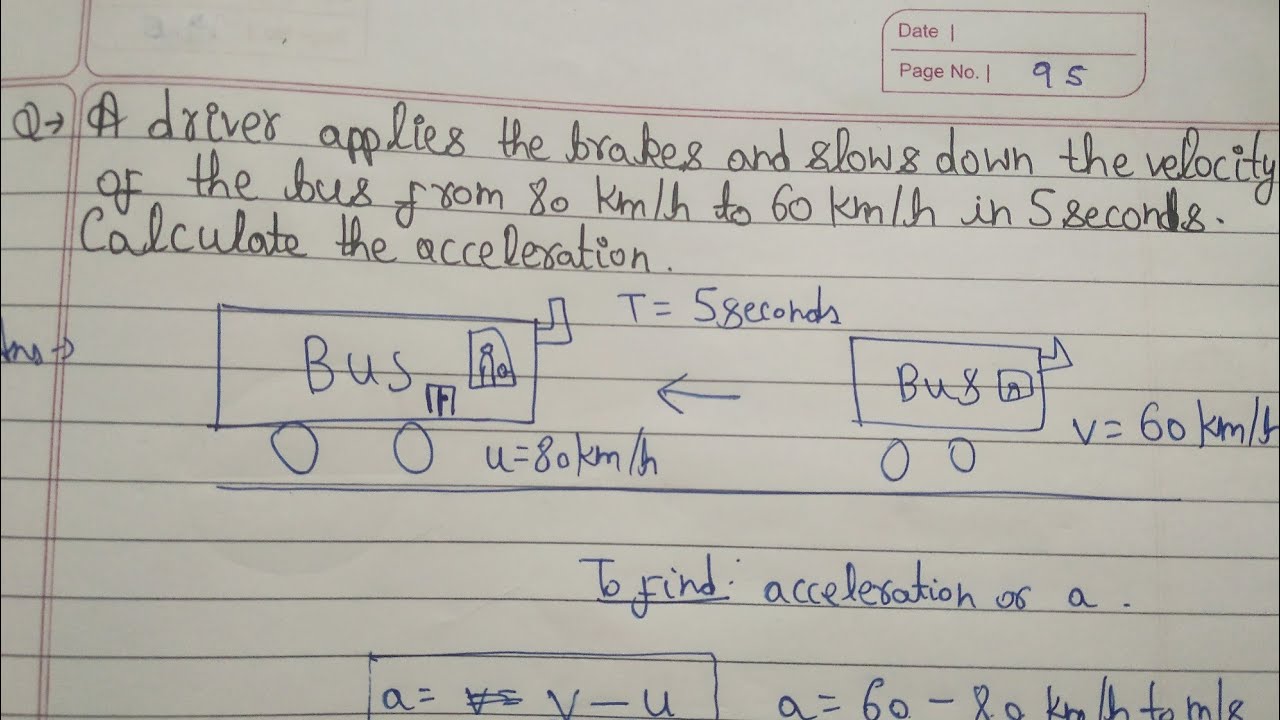 Date |
Page No. | 95
Q→ A driver applies the brakes and slows down the velocity
of the bus from 80 km/h to 60 km/h in 5 seconds.
Calculate the acceleration.
Ans→
T = 5 seconds
Bus
Bus
u=80km/h
v= 60 km/h
To find: acceleration or a.
a = v - u
a = 60 - 80 km/h to m/s